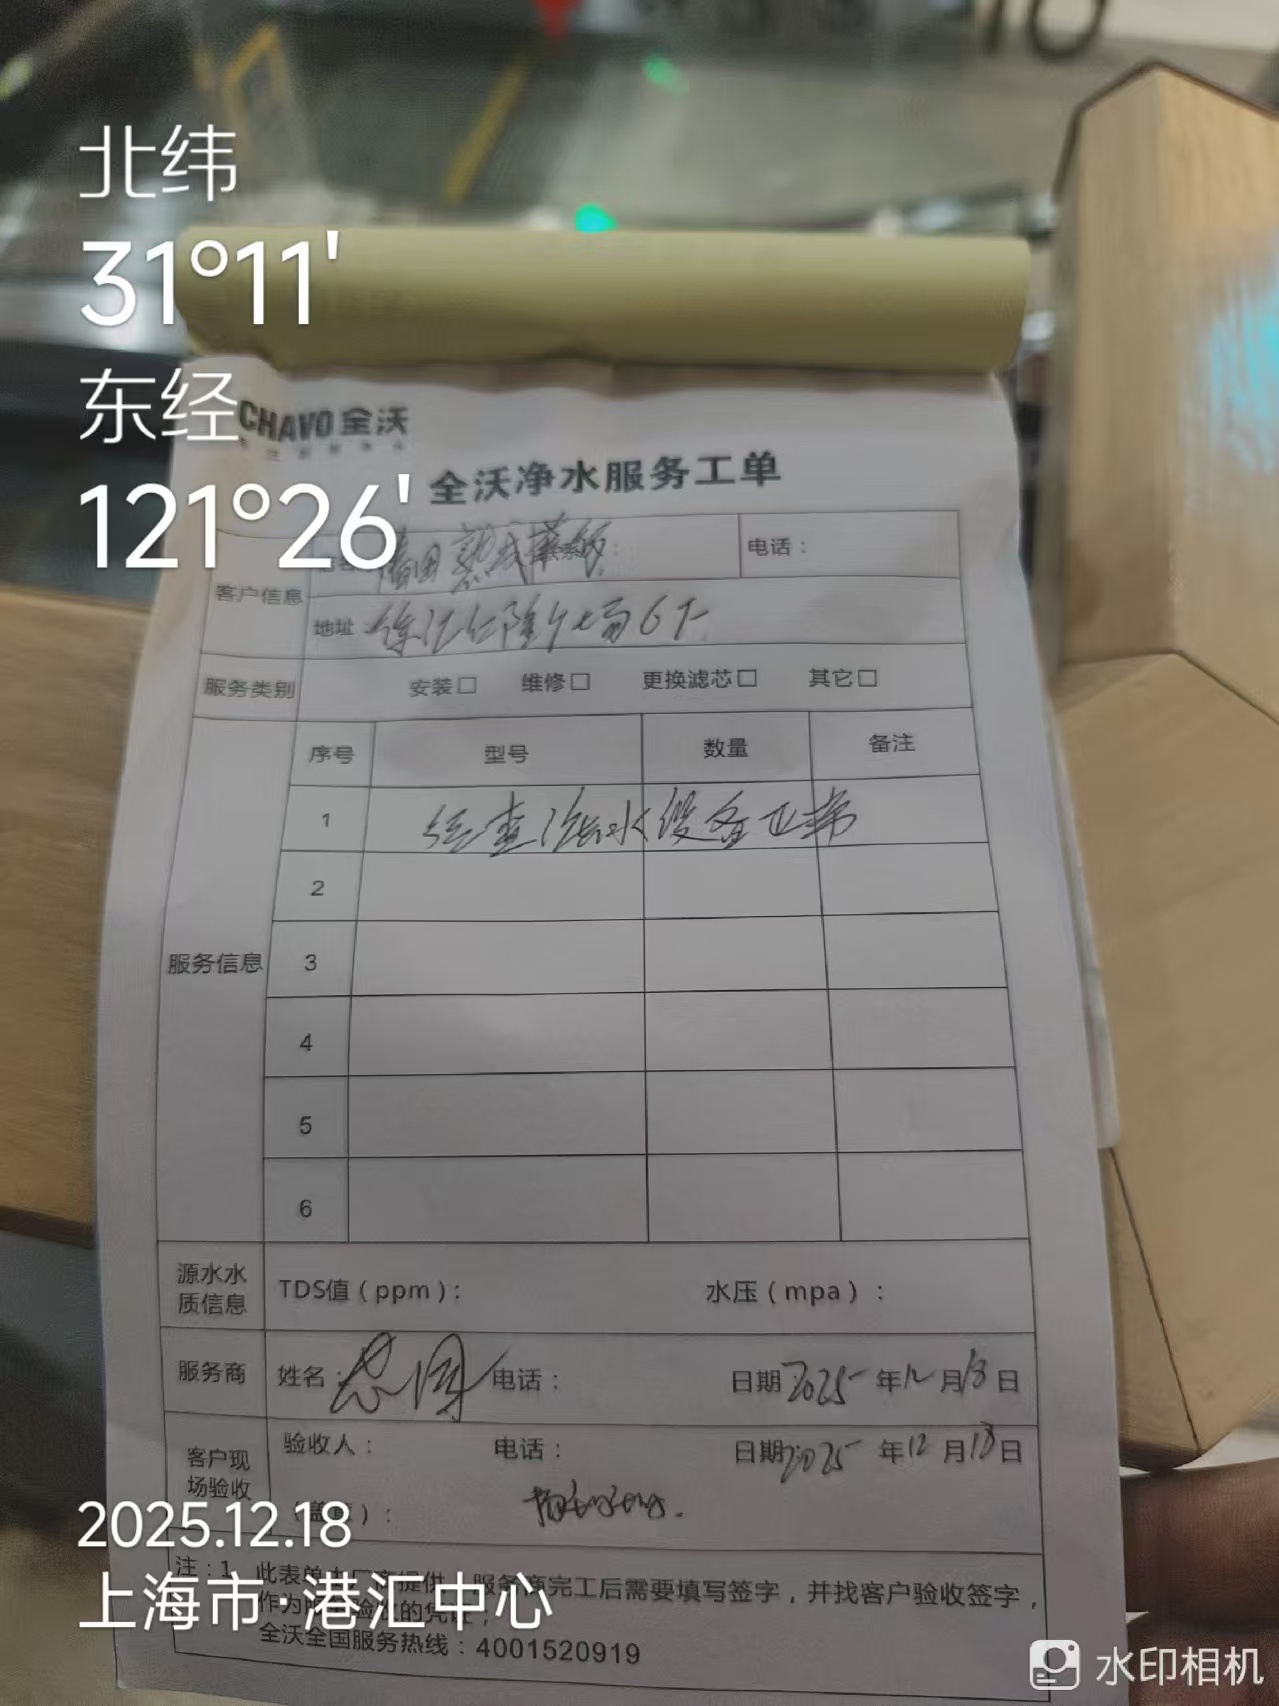 北纬
31°11'
东经
121°26'
CHAVO 全沃
全沃净水服务工单
客户信息
电话：
地址：徐汇 6F
服务类别 安装□ 维修□ 更换滤芯□ 其它□
服务信息
序号 型号 数量 备注
1 经查净水设备正常
2
3
4
5
6
源水水质信息 TDS值（ppm）： 水压（mpa）：
服务商 姓名： 电话： 日期2025年12月18日
客户现场验收 验收人： 电话： 日期2025年12月18日
（盖章）：
注：1、此表单由厂商提供，服务商完工后需要填写签字，并找客户验收签字，
作为 验收的凭证；
全沃全国服务热线：4001520919
2025.12.18
上海市·港汇中心
水印相机